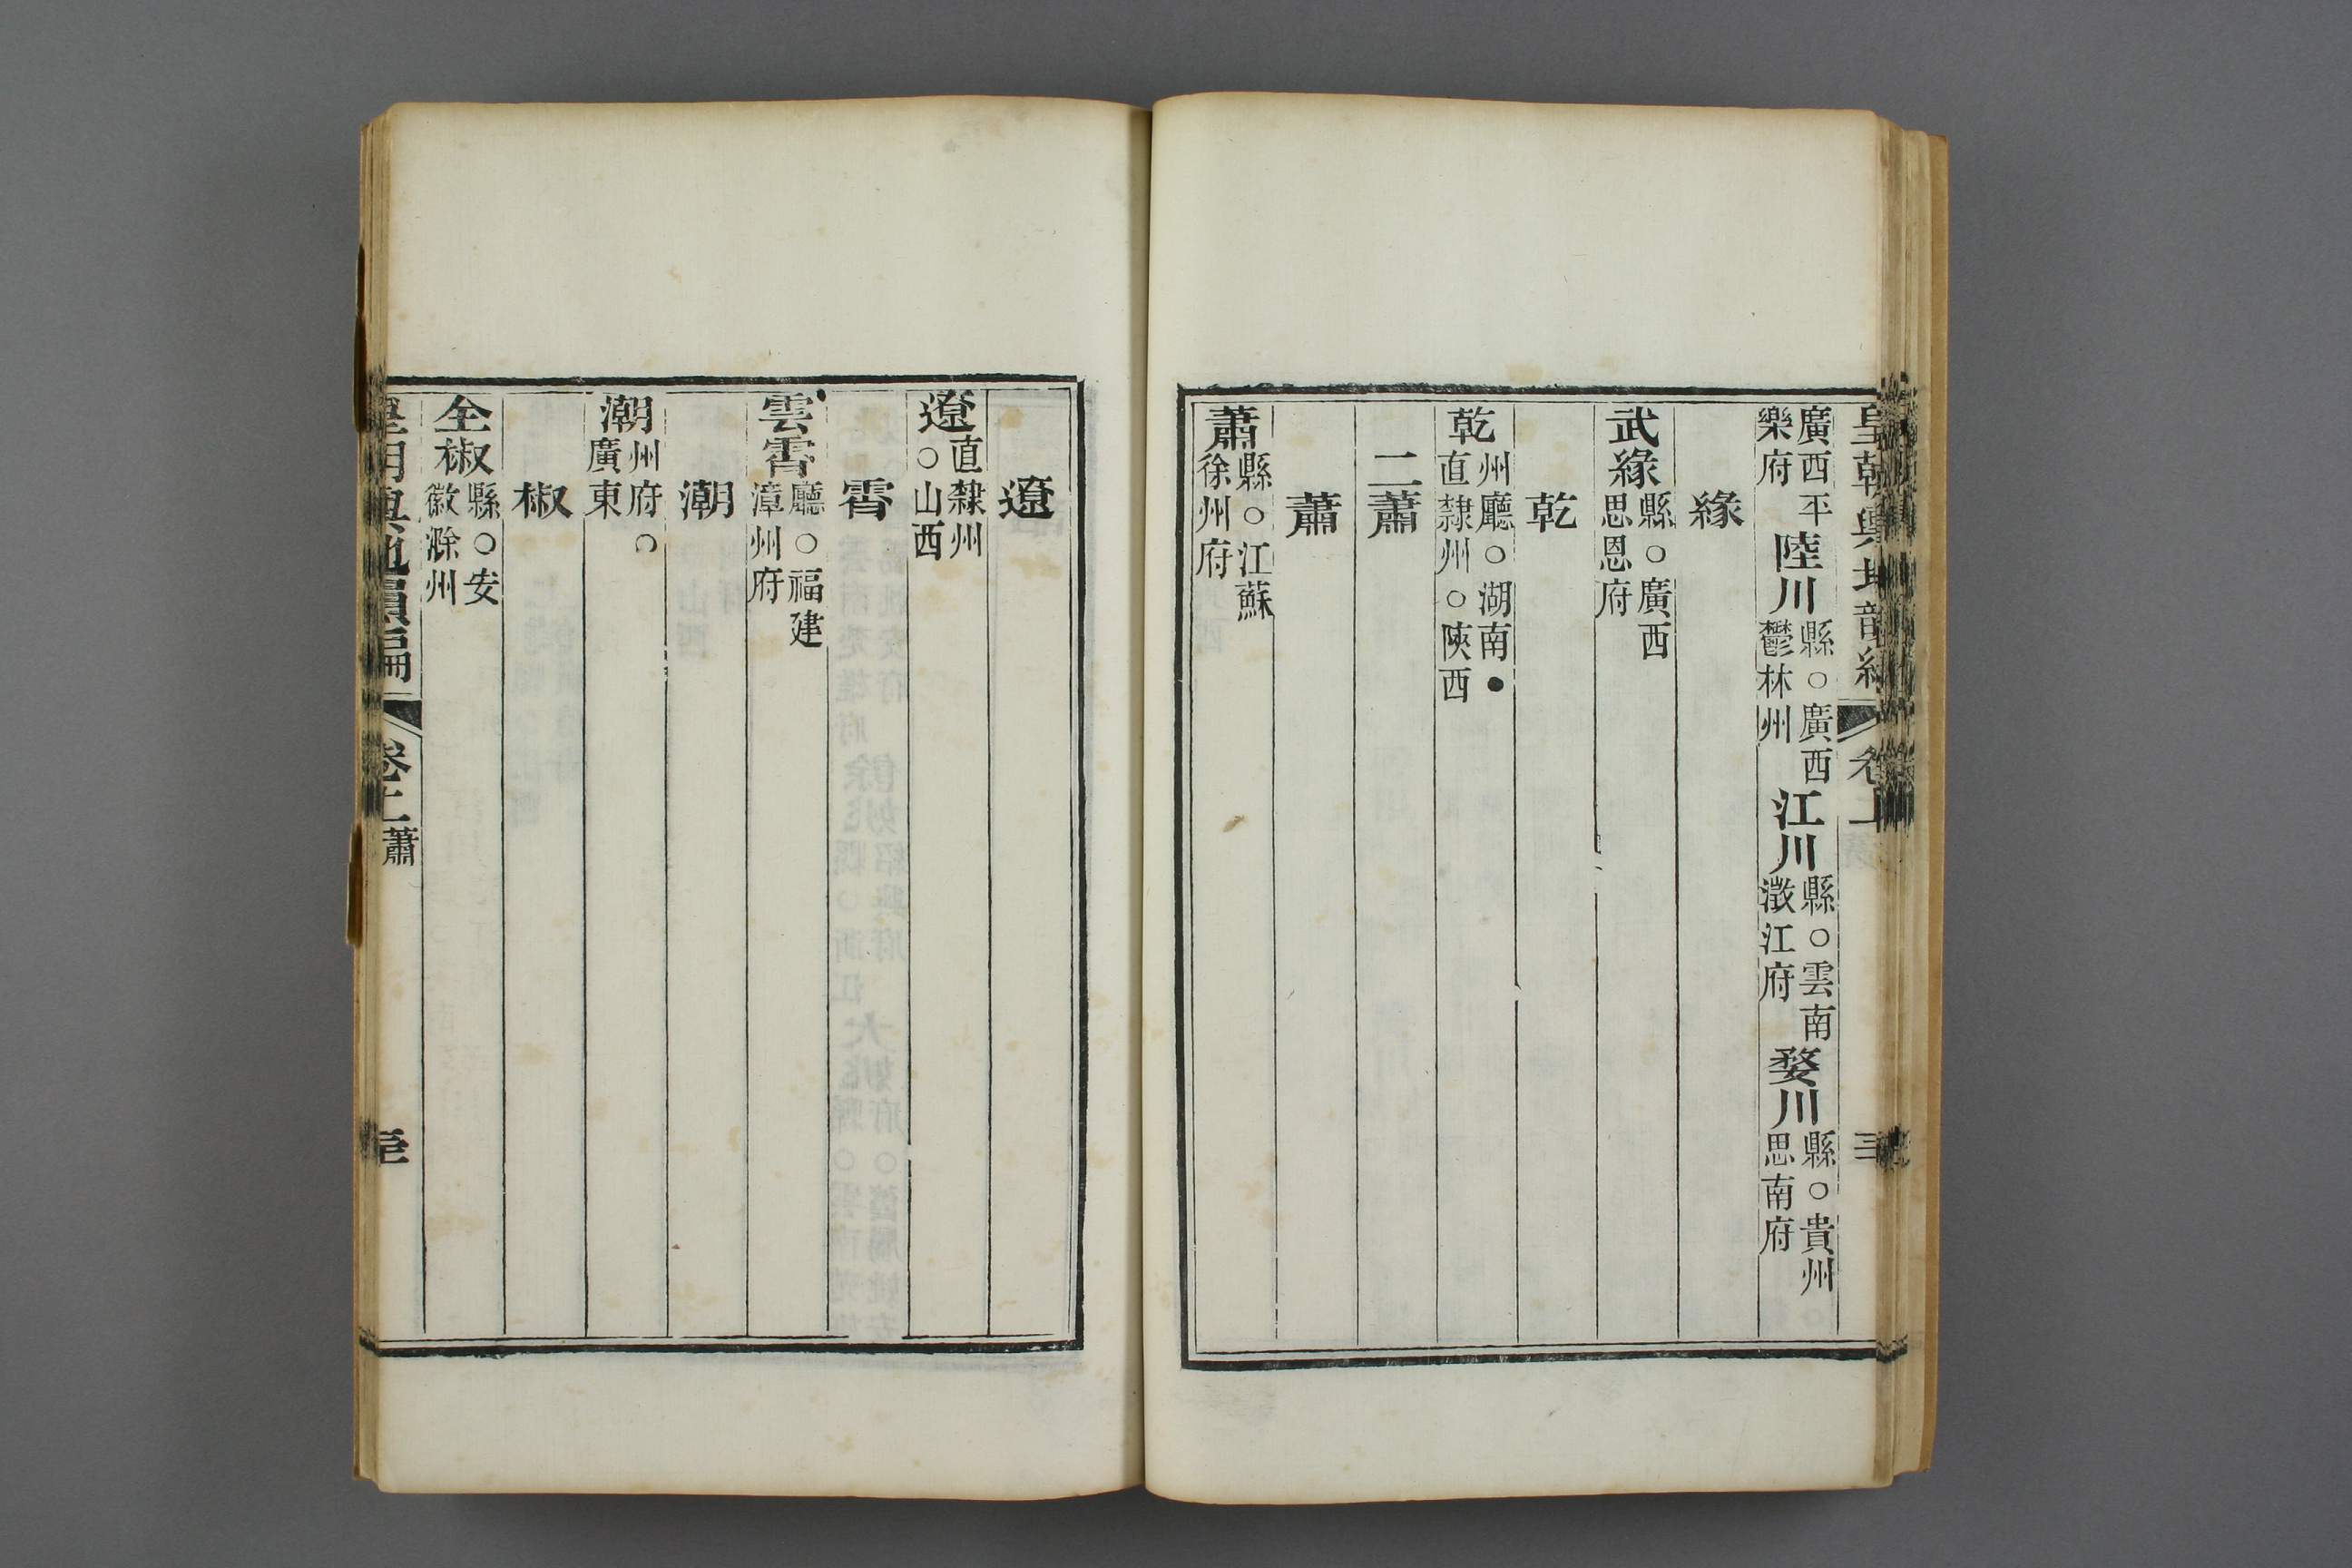 皇朝輿地韻編 卷上
廣西平樂府 陸川縣○廣西鬱林州 江川縣○雲南澂江府 婺川縣○貴州思南府
緣
武緣縣○廣西思恩府
乾
乾州廳○湖南●直隸州○陝西
二蕭
蕭
蕭縣○江蘇徐州府
遼
遼直隸州○山西
霄
雲霄廳○福建漳州府
潮
潮州府○廣東
椒
全椒縣○安徽滁州
皇朝輿地韻編 卷上 蕭